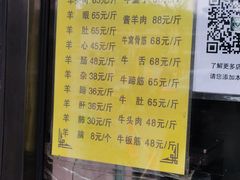 羊 眼 65元/斤 酱羊肉 88元/斤
羊 肚 65元/斤 牛窝骨筋 68元/斤
羊 心 45元/斤 牛 舌 68元/斤
羊 筋 48元/斤 牛蹄筋 65元/斤
羊 杂 38元/斤 牛 肚 65元/斤
羊 蹄 36元/斤 牛头肉 48元/斤
羊 肝 36元/斤 牛板筋 48元/斤
羊 肺 30元/斤
羊 脑 8元/个
了解更多店
请您添加